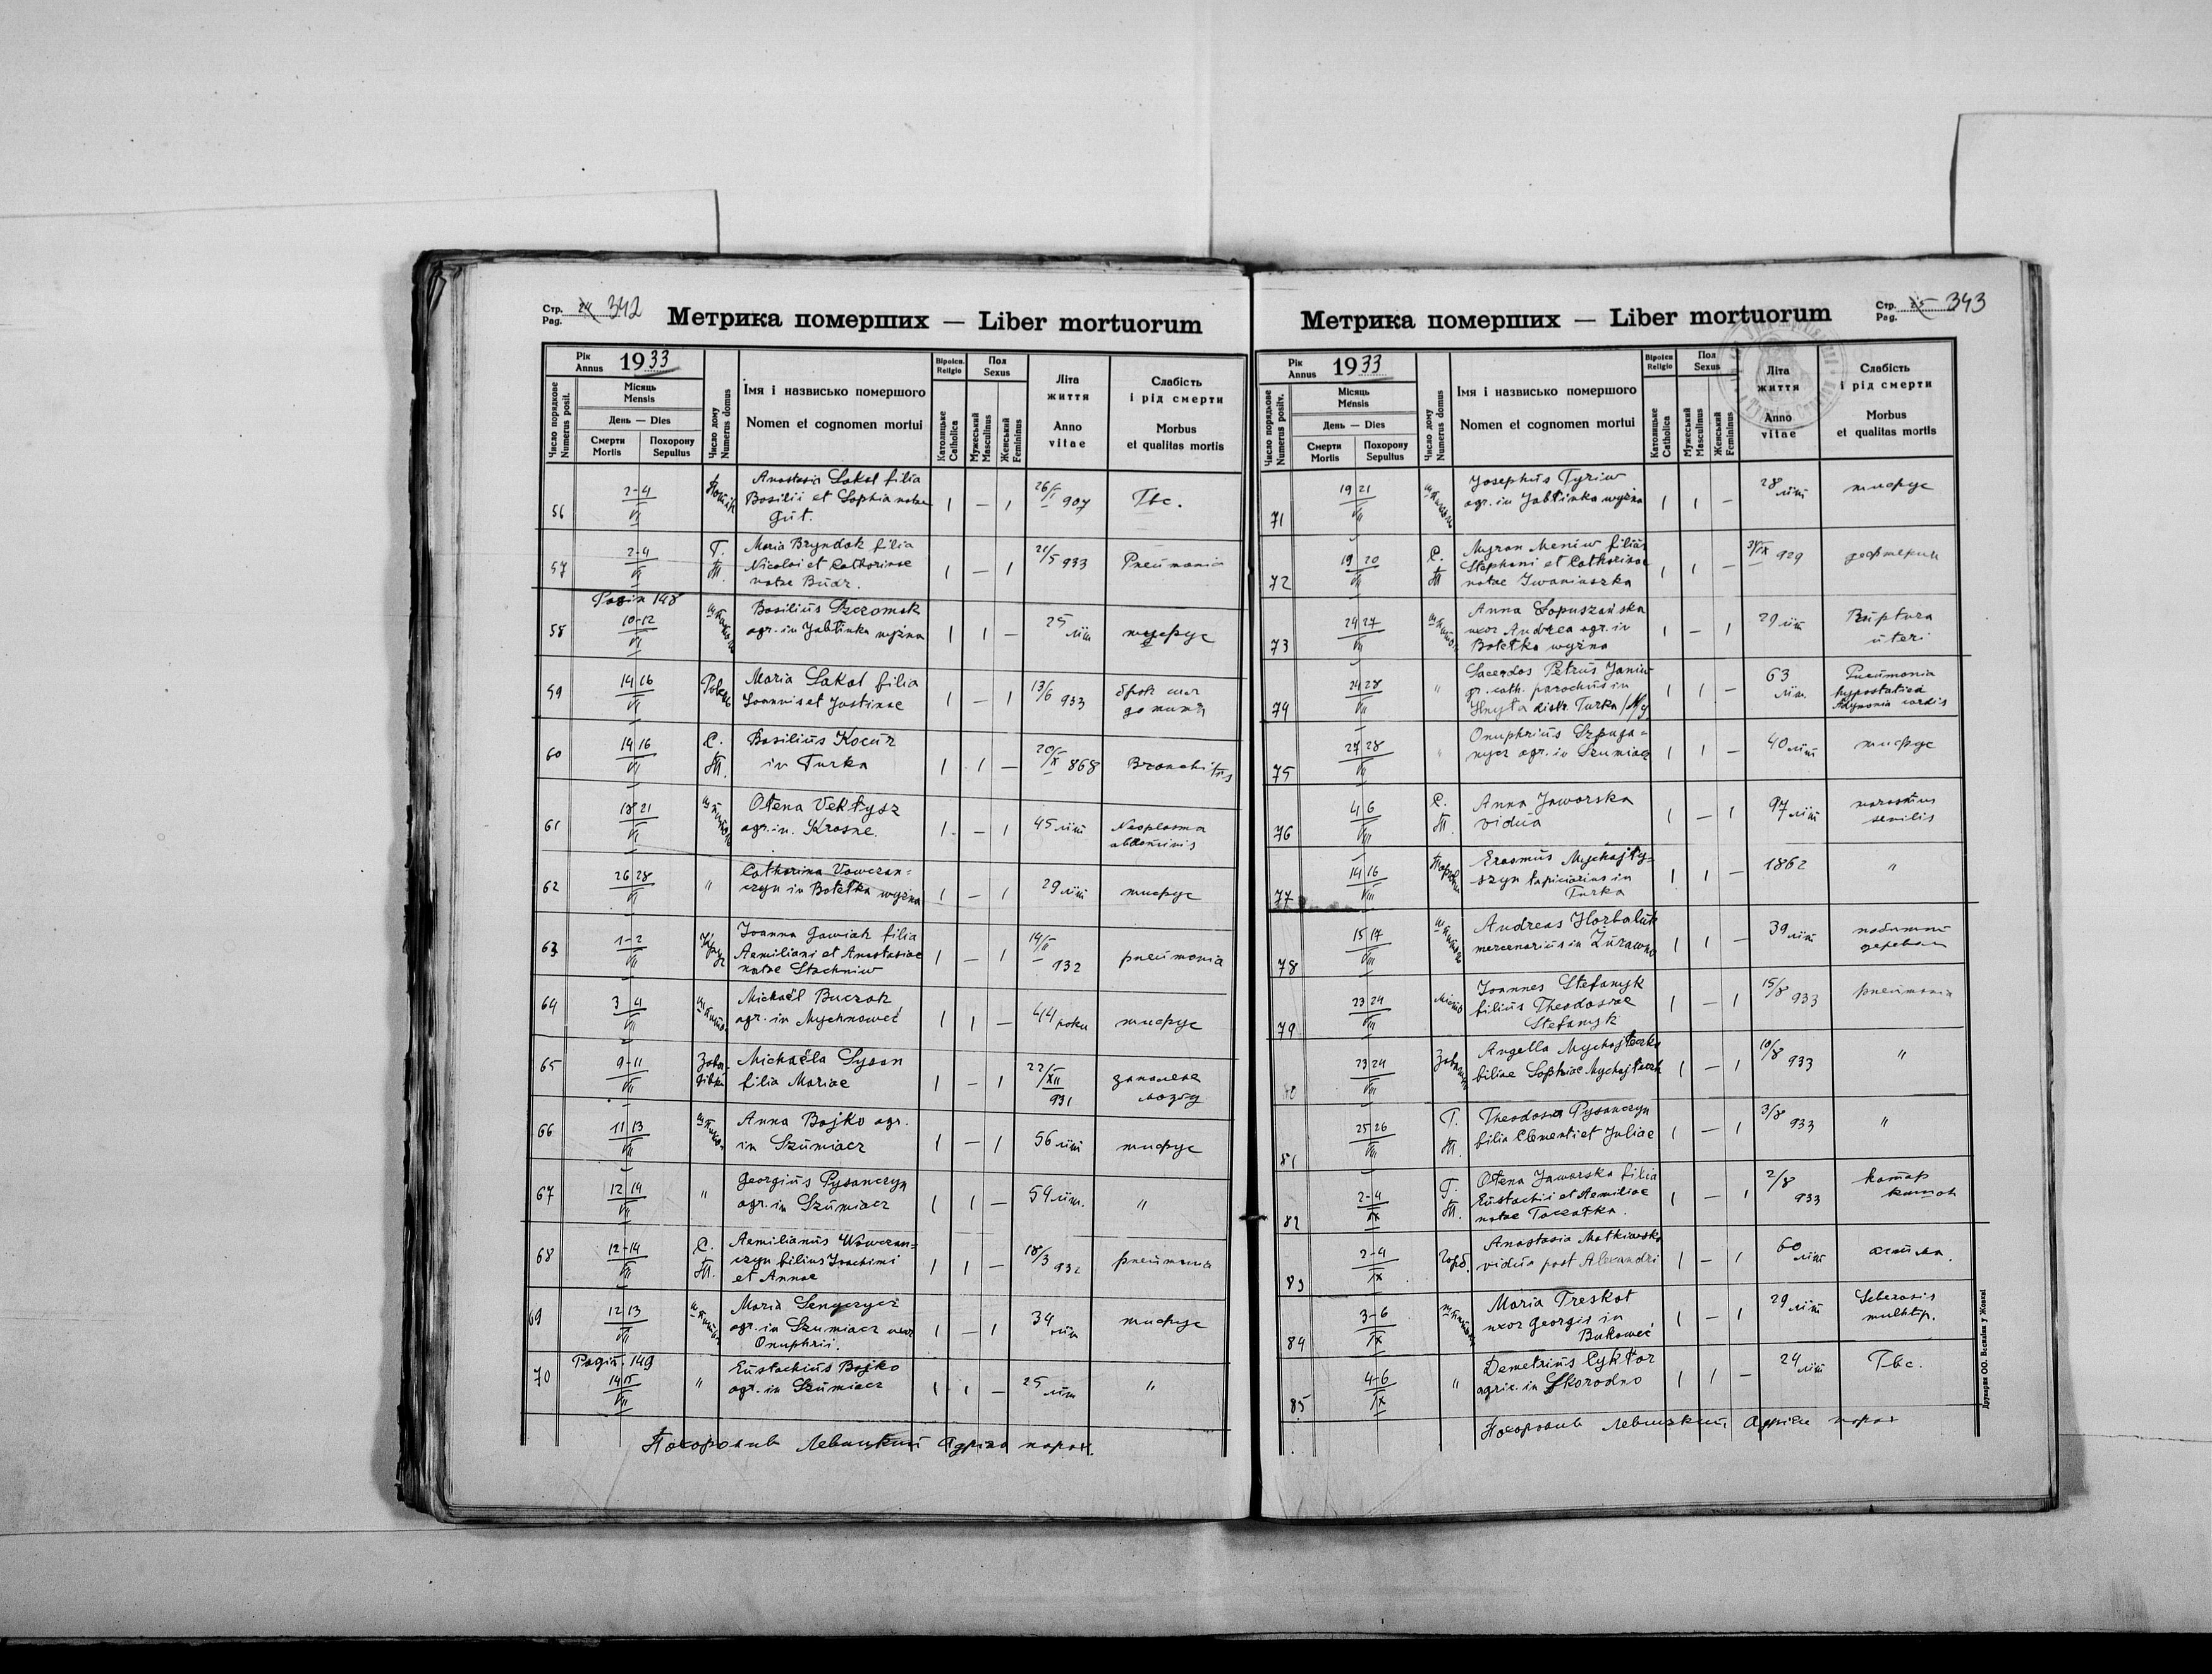 Стр. 24 342
Pag.
Метрика померших — Liber mortuorum
Рік
Annus 1933
Місяць
Mensis
День — Dies
Смерти
Mortis
Похорону
Sepultus
Число порядкове
Numerus posit.
Число дому
Numerus domus
Імя і назвисько помершого
Nomen et cognomen mortui
Віроісп.
Religio
Католицьке
Catholica
Пол
Sexus
Мужеський
Masculinus
Женський
Femininus
Літа
життя
Anno
vitae
Слабість
і рід смерти
Morbus
et qualitas mortis
56 2-4 VI Anastasia Sakal filia 26/I 907 Tbc.
Basilii et Sophia natae 1 — 1
Gut.
57 2-4 VI Г. Maria Bryndak filia 21/5 933 Pneumonia
Ш. Nicolai et Catharinae 1 — 1
natae Budz.
Pagin 148
58 10-12 VI Basilius Szczomak 25 літ тифус
agr. in Jabłinka wyżna 1 1 —
59 14 16 VI Maria Sakal filia 13/6 933
Joannis et Justinae 1 — 1
60 14 16 VI С. Basilius Kocur 20/IX 868 Bronchitis
Ш. in Turka 1 1 —
61 18 21 VI Ołena Vekłysz 45 літ Neoplasma
agr. in. Krosne. 1 — 1 abdominis
62 26 28 VI " Catharina Vowczan=
czyn in Botelka wyżna 1 — 1 29 літ тифус
63 1-2 VII Joanna Gawiak filia 14/II 132 pneumonia
Aemiliani et Anastasiae 1 — 1
natae Stachniw
64 3 4 VII Michaël Buczak 44 роки тифус
agr. in Mychnoweć 1 1 —
65 9-11 VII Michaëla Lysan 22/XII 931 запалення
filia Mariae 1 — 1 мозку
66 11 13 VII Anna Bojko agr. 56 літ тифус
in Szumiacz 1 — 1
67 12 14 VII " Georgius Pysanczyn 54 літ. "
agr. in Szumiacz 1 1 —
68 12-14 VII С. Aemilianus Wowczan= 18/3 932 pneumonia
Ш. czyn filius Joachimi 1 1 —
et Annae
69 12 13 VII Maria Senyczycz 34 літ тифус
agr. in Szumiacz uxor 1 — 1
Onuphrii.
Pagin. 149
70 14 15 VII " Eustachius Bojko 25 літ "
agr. in Szumiacz 1 1 —
Похоронив Левицкий Адріян парох.
Стр. 25 343
Pag.
Метрика померших — Liber mortuorum
Рік
Annus 1933
Місяць
Mensis
День — Dies
Смерти
Mortis
Похорону
Sepultus
Число порядкове
Numerus positv.
Число дому
Numerus domus
Імя і назвисько помершого
Nomen et cognomen mortui
Віроісп
Religio
Католицьке
Catholica
Пол
Sexus
Мужеський
Masculinus
Женський
Femininus
Літа
життя
Anno
vitae
Слабість
і рід смерти
Morbus
et qualitas mortis
71 19 21 VII Josephus Tyriw 28 літ тифус
agr. in Jabłinka wyżna 1 1 —
72 19 20 VII С. Myron Meniw filius 929
Ш Stephani et Catharinae 1 1 —
natae Iwaniuszka
73 24 27 VII Anna Łopuszańska 29 літ Ruptura
uxor Andrea agr. in 1 — 1 uteri
Botelka wyżna
74 24 28 VII " Sacerdos Petrus Janiw 63 Pneumonia
gr. cath. parochus in 1 1 — літ. hypostatica
Hnyła distr. Turka Adynamia cordis
75 27 28 VII " Onuphrius Szpuga= 40 літ тифус
nycz agr. in Szumiacz 1 1 —
76 4 6 VIII С. Anna Jaworska 97 літ marasmus
Ш. vidua 1 — 1 senilis
77 14 16 VIII Erasmus Mychajły= 1862 "
szyn tapiciarius in 1 1 —
Turka
78 15 17 VIII Andreas Horbaluk 39 літ
mercenarius in Żurawno 1 1 — деревом
79 23 24 VIII Місто Joannes Stefanyk 15/8 933 pneumonia
filius Theodosiae 1 — 1
Stefanyk
80 23 24 VIII Angella Mychajłeczko 10/8 933 "
filiae Sophiae Mychajłeczk 1 — 1
81 25 26 VIII Г. Theodosia Pysanczyn 3/8 933 "
Ш. filia Clementi et Juliae 1 — 1
82 2-4 IX Г. Ołena Jaworska filia 2/8 933 катар
Ш. Eustachii et Aemiliae 1 — 1 кишок
natae
83 2-4 IX Горб. Anastasia Matkiwska 60 літ астма.
vidua post Alexandri 1 — 1
84 3-6 IX Maria Treskot 29 літ Sclerosis
uxor Georgii in 1 — 1 multip.
Bukoweć
85 4-6 IX " Demetrius Cyktor 24 літ Tbc.
agric. in Skorodno 1 1 —
Похоронив Левицкий Адріян парох
Друкарня ОО. Василіян у Жовкві